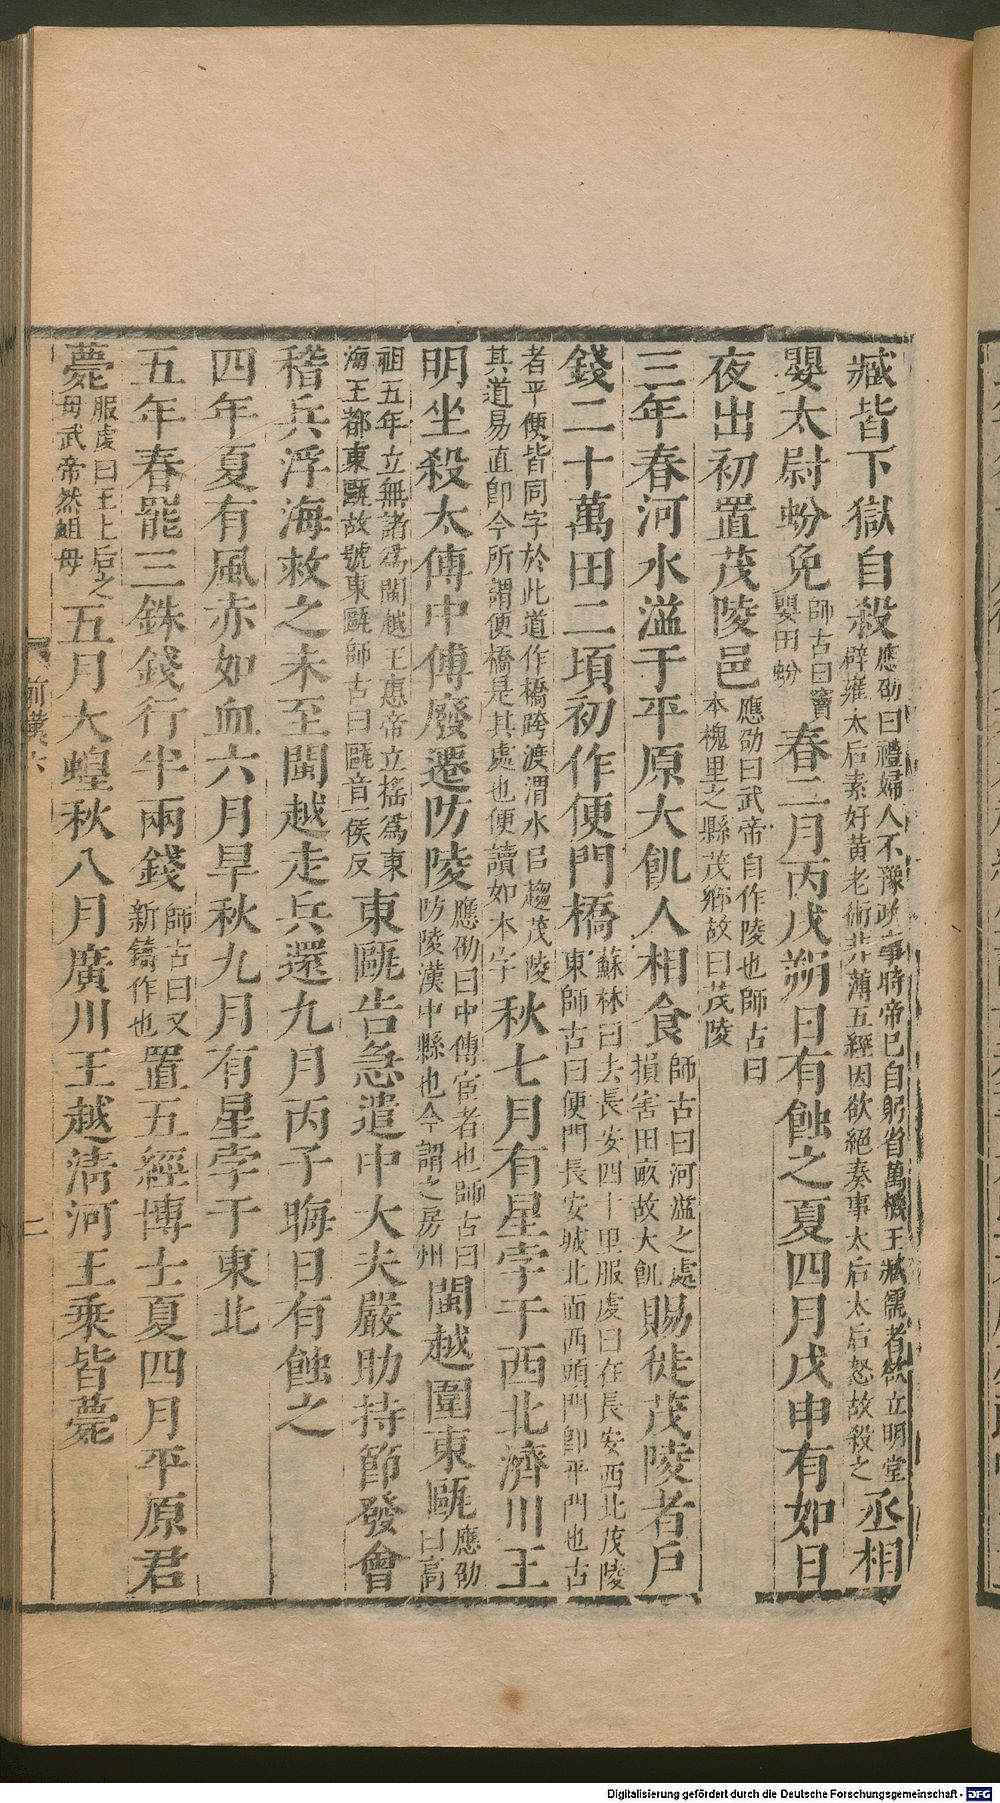 臧皆下獄自殺應劭曰禮婦人不豫政事時帝已自躬省萬機王臧儒者欲立明堂辟雍太后素好黃老術非薄五經因欲絕奏事太后太后怒故殺之丞相
嬰太尉蚡免師古曰竇嬰田蚡春二月丙戌朔日有蝕之夏四月戊申有如日
夜出初置茂陵邑應劭曰武帝自作陵也師古曰本槐里之縣茂鄉故曰茂陵
三年春河水溢于平原大飢人相食師古曰河溢之處損害田畝故大飢賜徙茂陵者戶
錢二十萬田二頃初作便門橋蘇林曰去長安四十里服虔曰在長安西北茂陵東師古曰便門長安城北面西頭門即平門也古
者平便皆同字於此道作橋跨渡渭水㠯趨茂陵其道易直即今所謂便橋是其處也便讀如本字秋七月有星孛于西北濟川王
明坐殺太傅中傅廢遷防陵應劭曰中傅宦者也師古曰防陵漢中縣也今謂之房州閩越圍東甌應劭曰高
祖五年立無諸爲閩越王惠帝立搖爲東海王都東甌故號東甌師古曰甌音一侯反東甌告急遣中大夫嚴助持節發會
稽兵浮海救之未至閩越走兵還九月丙子晦日有蝕之
四年夏有風赤如血六月旱秋九月有星孛于東北
五年春罷三銖錢行半兩錢師古曰又新鑄作也置五經博士夏四月平原君
薨服虔曰王太后之母武帝外祖母五月大蝗秋八月廣川王越淸河王乘皆薨
前漢六
二
Digitalisierung gefördert durch die Deutsche Forschungsgemeinschaft - DFG